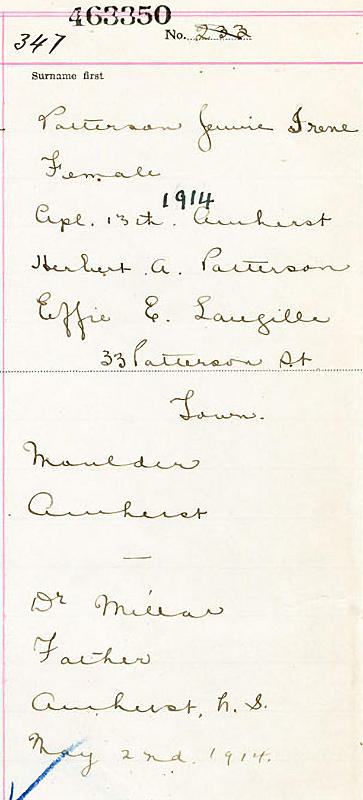 463350
347 No. 233
Surname first
Patterson Jennie Irene
Female
1914
Apl. 13th. Amherst
Herbert A. Patterson
Effie E. Langille
33 Patterson St
Town.
Moulder
Amherst
—
Dr Millar
Father
Amherst, N. S.
May 2nd. 1914.